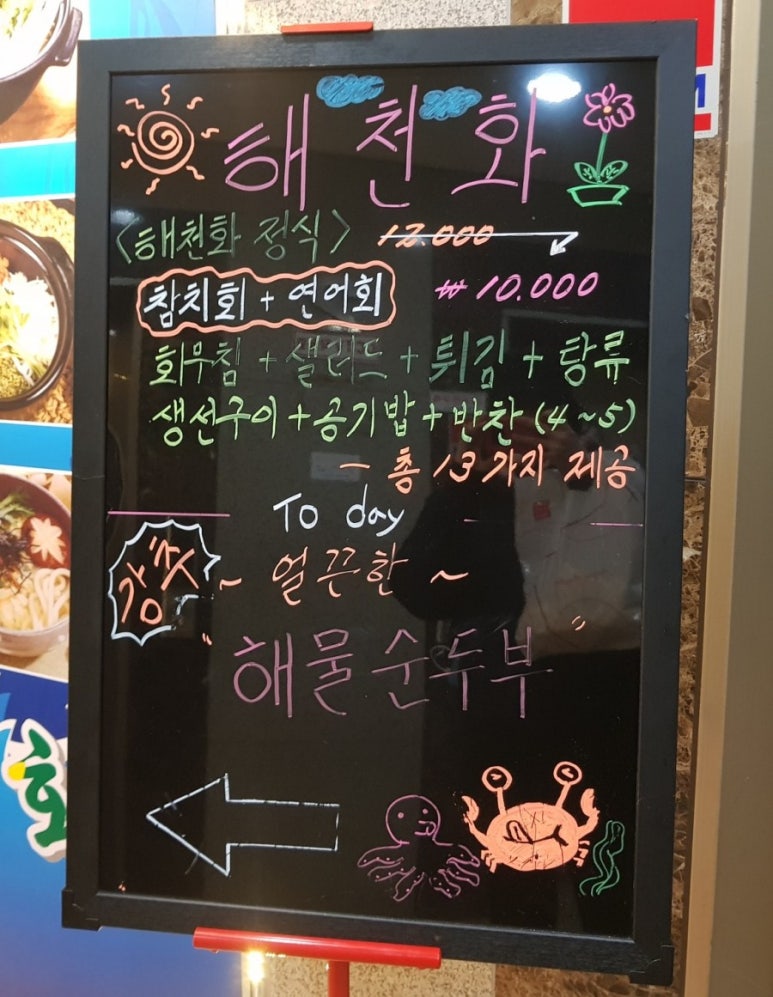 해천화
<해천화 정식> 12.000
참치회 + 연어회 ₩ 10.000
회무침 + 샐러드 + 튀김 + 탕류
생선구이 + 공기밥 + 반찬 (4~5)
- 총 13가지 제공
To day
강추 ~ 얼끈한 ~
"해물순두부"